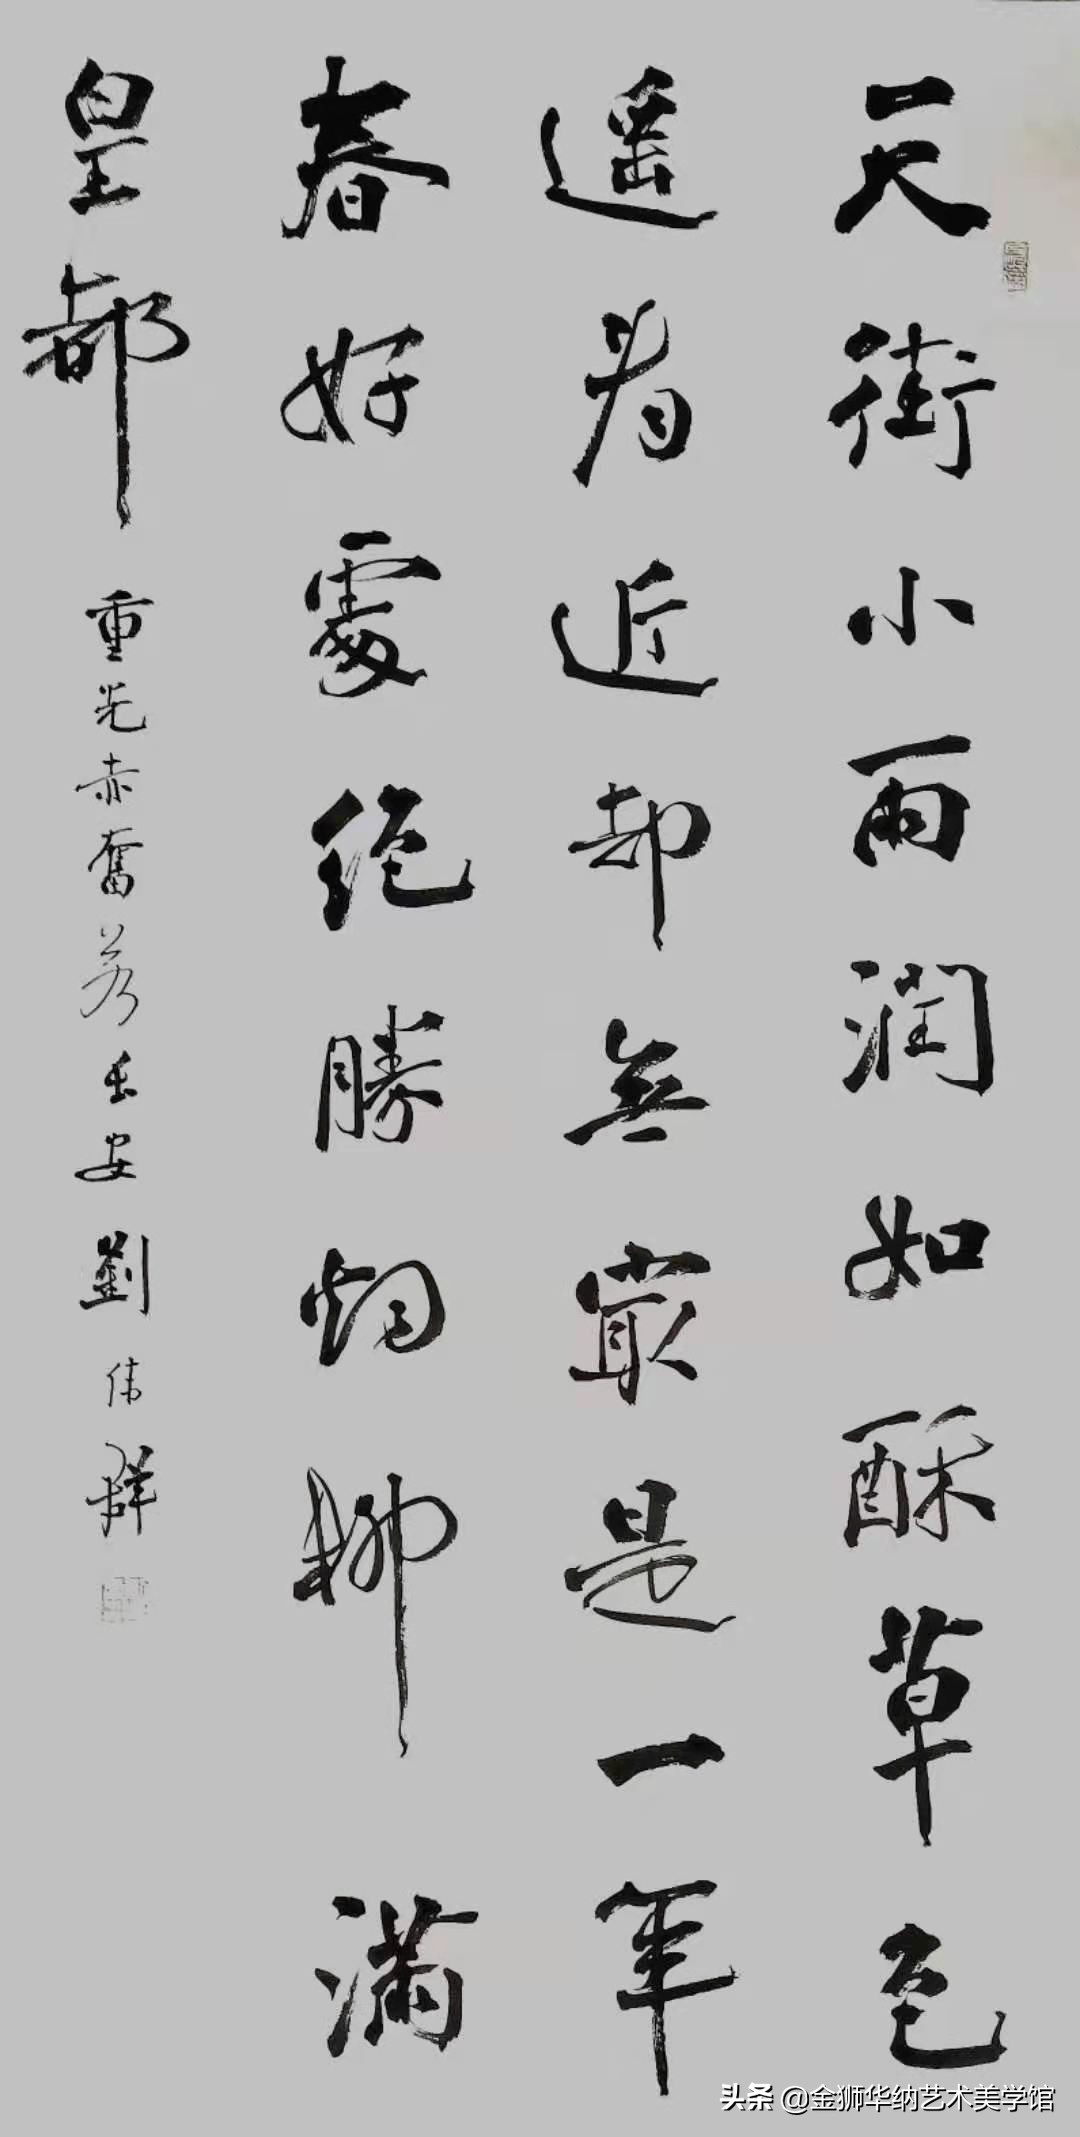 天街小雨潤如酥草色
遥看近却無最是一年
春好處絶勝煙柳滿
皇都
重光赤奮若長安劉伟群
头条 @金狮华纳艺术美学馆